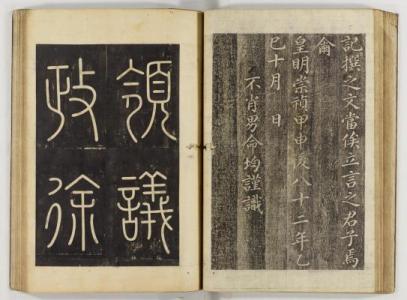 記撰之文當俟立言之君子焉
皇明崇禎甲申後八十二年乙
巳十月 日
不肖男命均謹識
領議
政徐